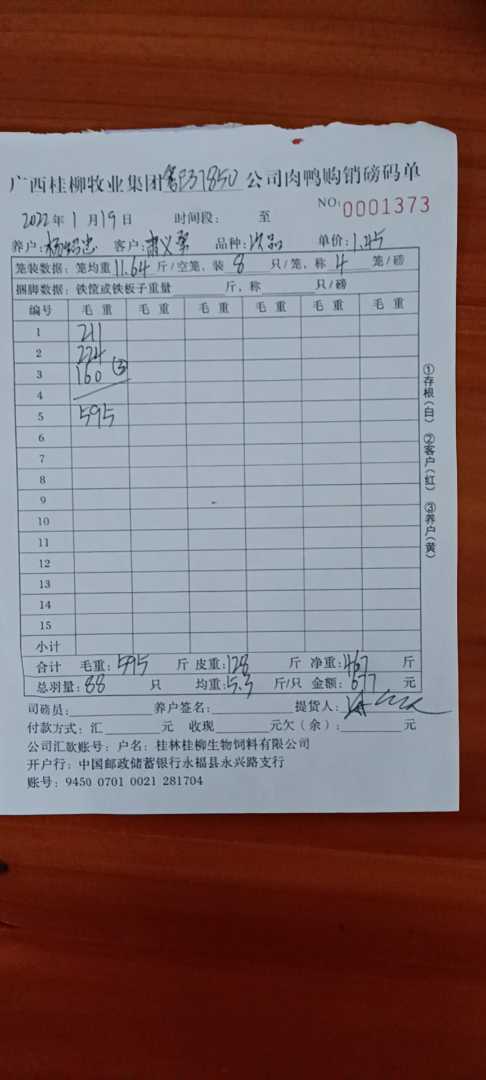 广西桂柳牧业集团 E31850 公司肉鸭购销磅码单
NO: 0001373
2022年1月19日 时间段: 至
养户: 杨 忠 客户: 肃义 品种: 次品 单价: 1.45
笼装数据: 笼均重 11.64 斤/空笼, 装 8 只/笼, 称 4 笼/磅
捆脚数据: 铁筐或铁板子重量 斤, 称 只/磅
编号 毛重 毛重 毛重 毛重 毛重 毛重
1 211
2 224
3 160 (3)
4
5 595
6
7
8
9
10
11
12
13
14
15
小计
合计 毛重: 595 斤 皮重: 128 斤 净重: 467 斤
总羽量: 88 只 均重: 5.3 斤/只 金额: 677 元
司磅员: 养户签名: 提货人:
付款方式: 汇 元 收现 元欠(余): 元
公司汇款账号: 户名: 桂林桂柳生物饲料有限公司
开户行: 中国邮政储蓄银行永福县永兴路支行
账号: 9450 0701 0021 281704
①存根(白) ②客户(红) ③养户(黄)